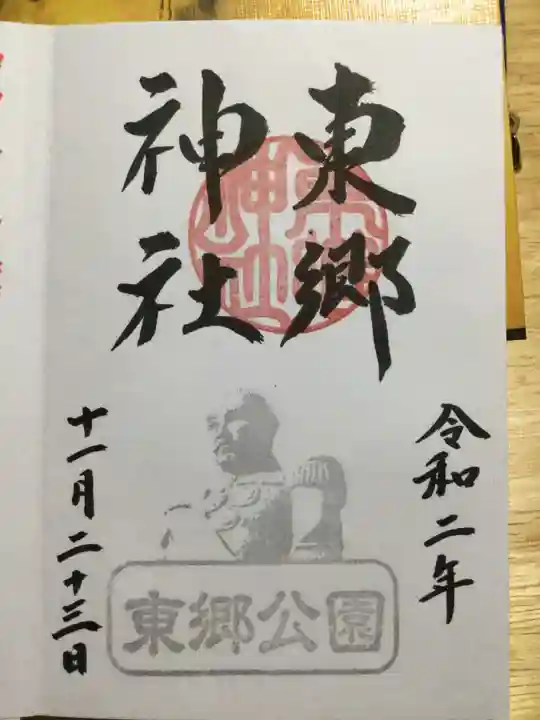 東郷
神社
令和二年
十一月二十三日
東郷公園